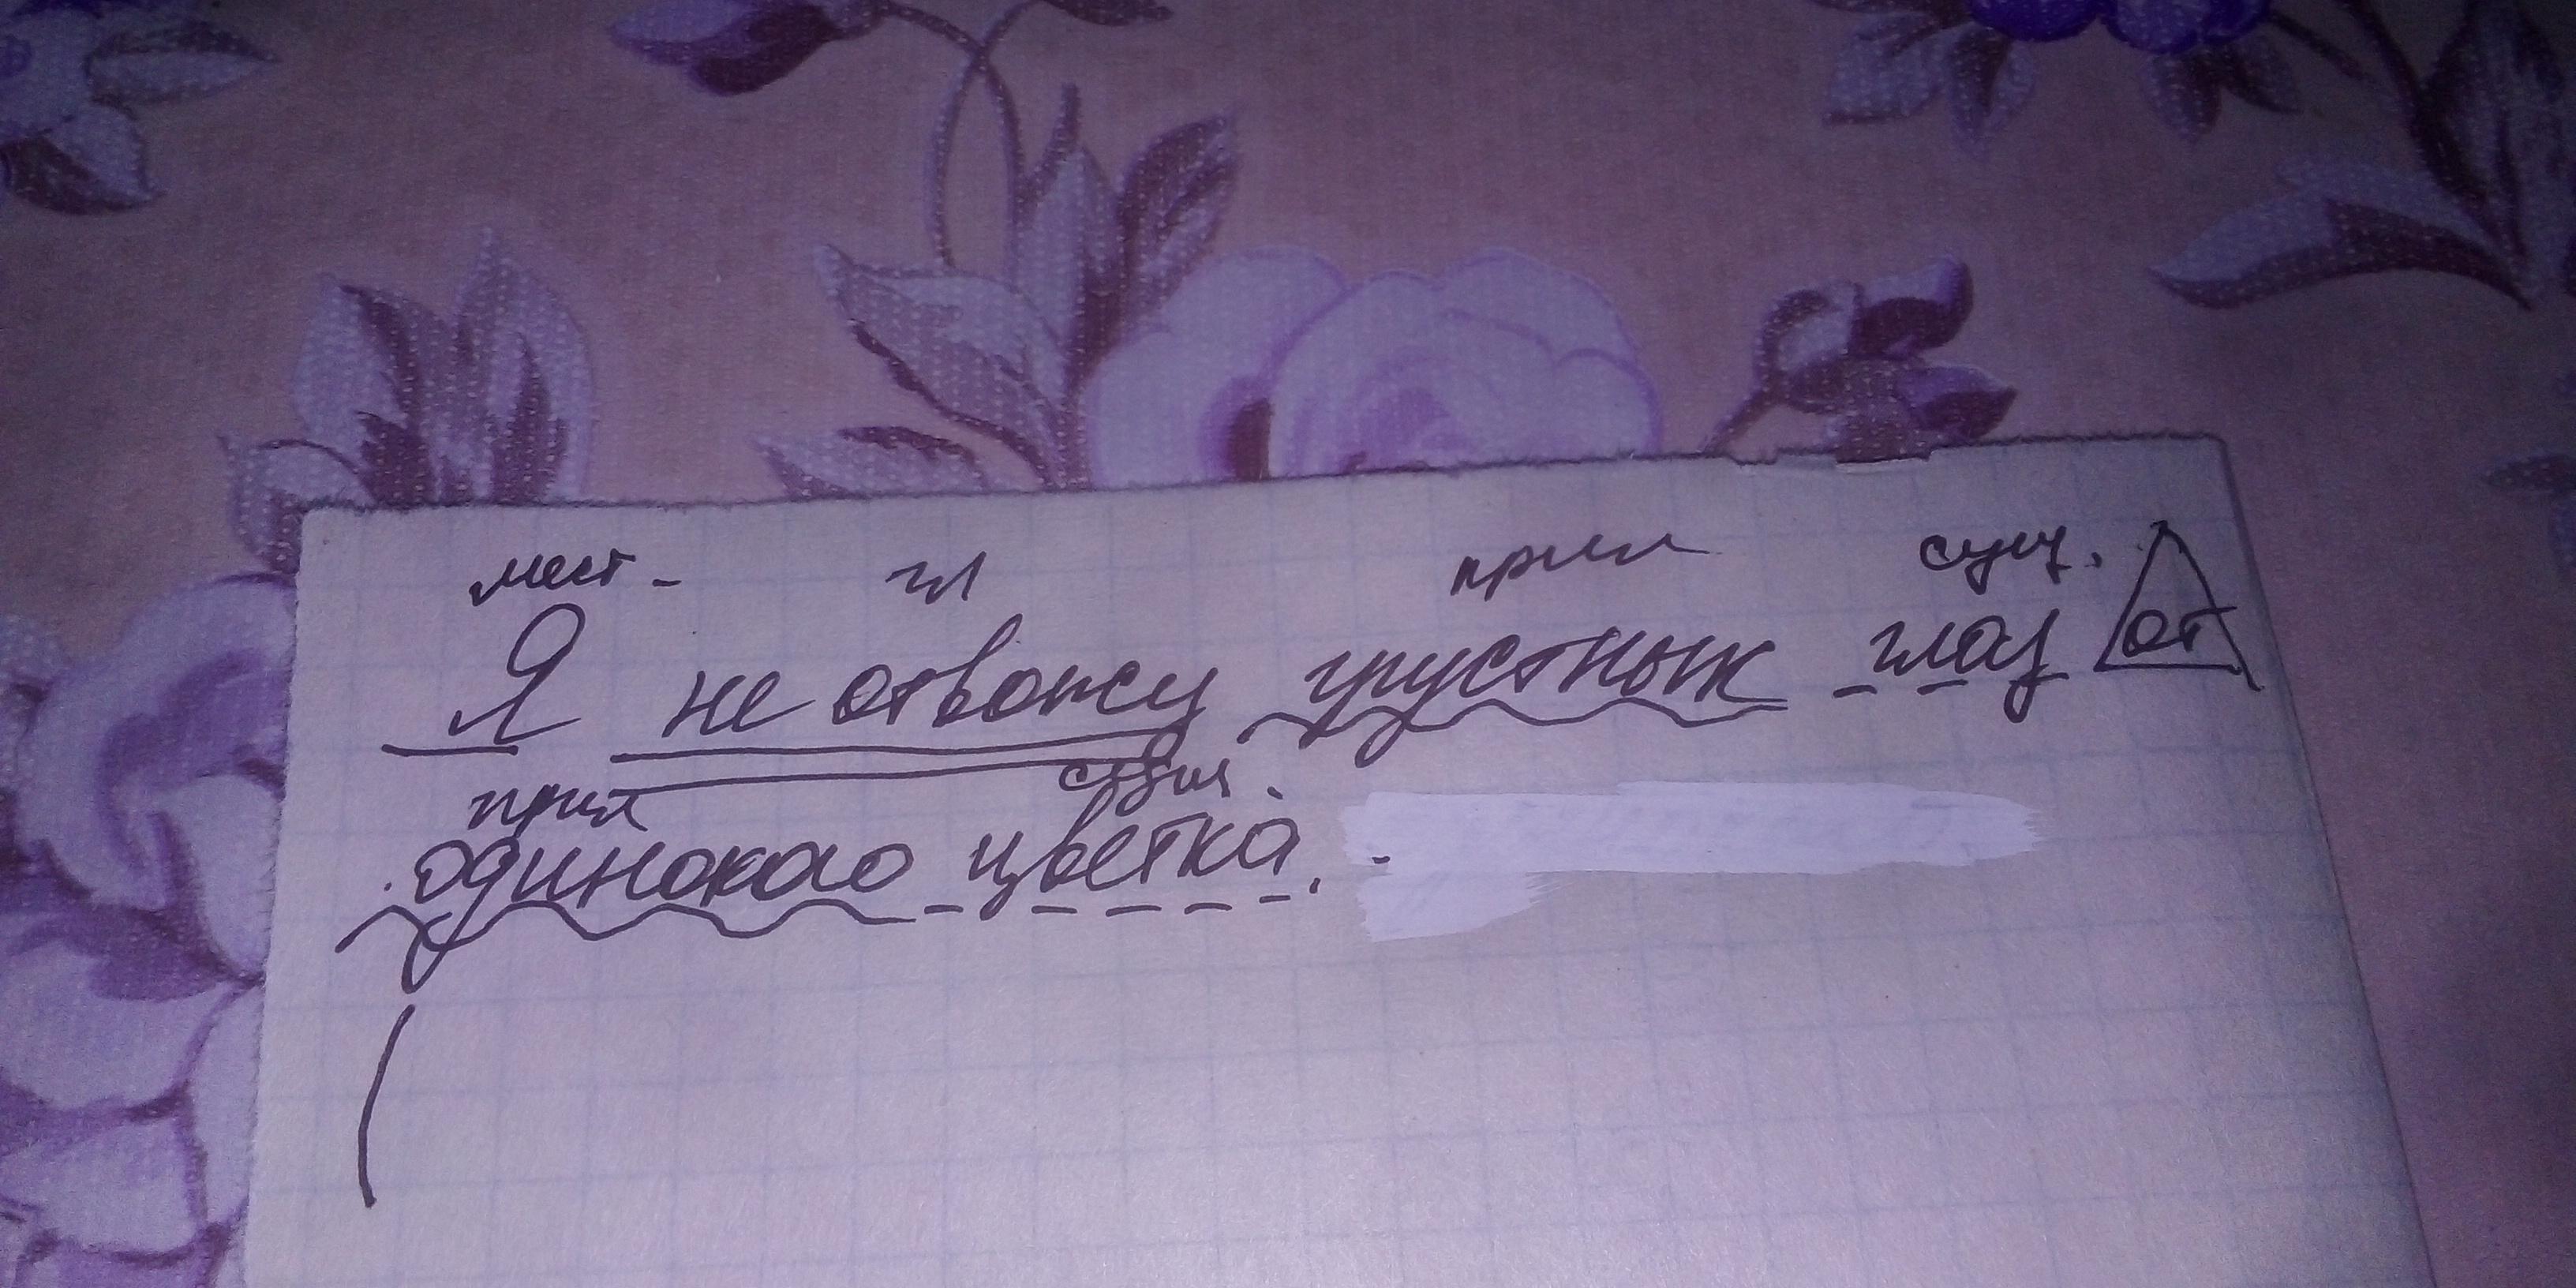 мест. гл прил сущ.
Я не отвожу грустных глаз от
прил сущ.
одинокого цветка.